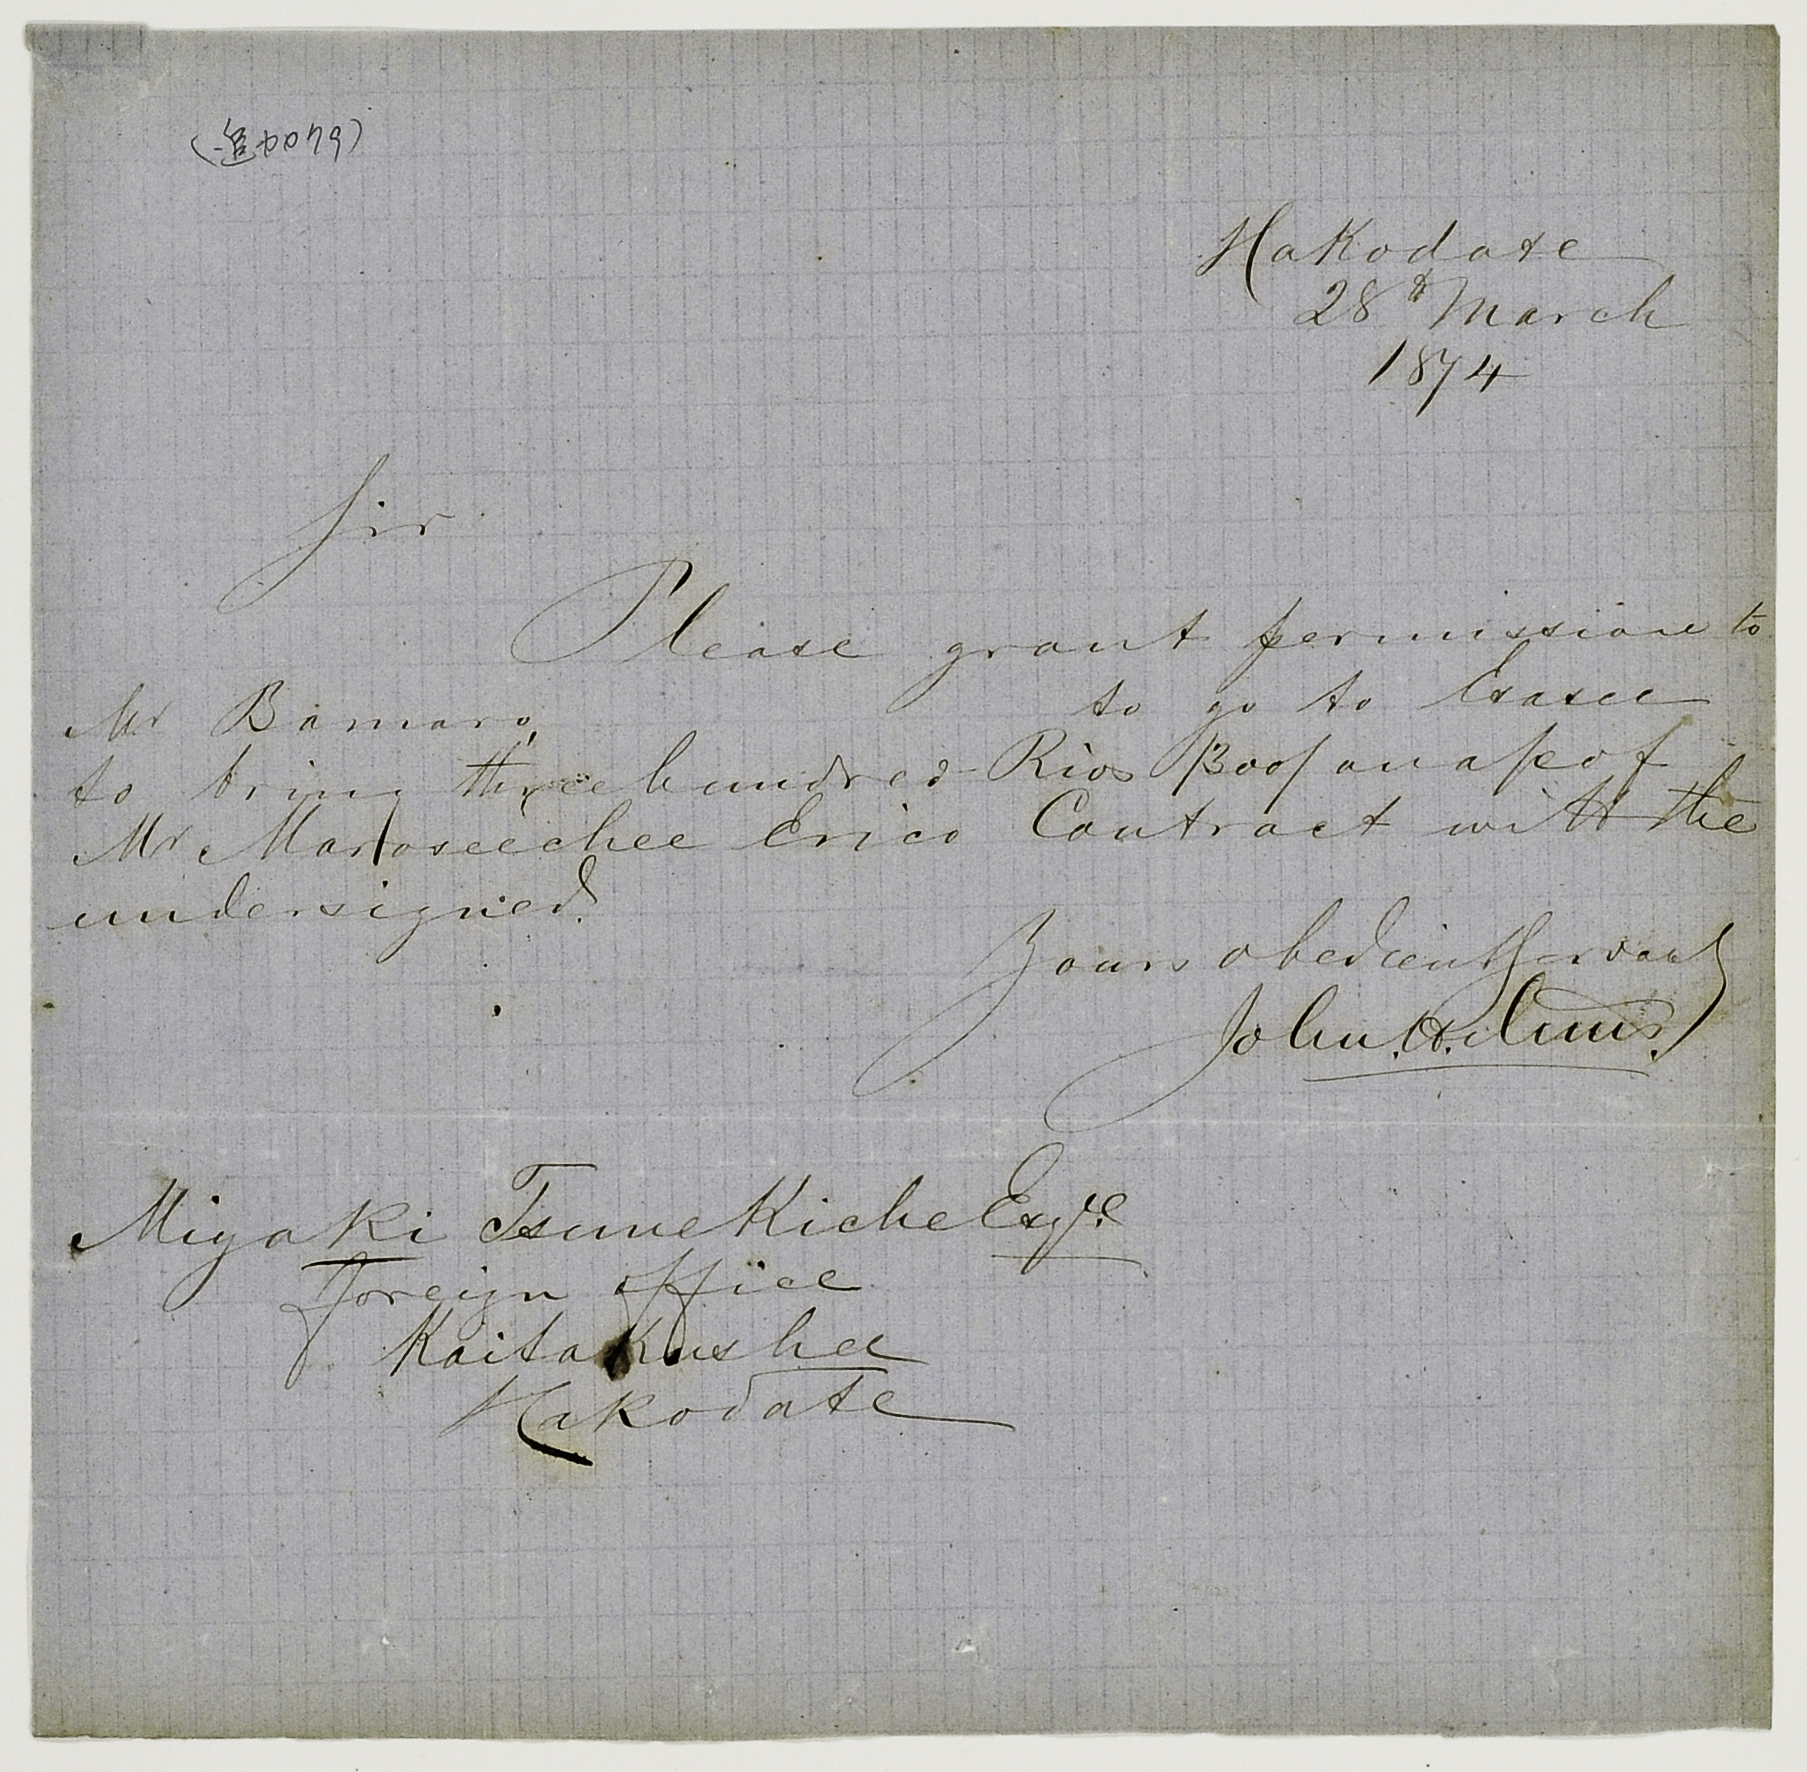 (追加079)
Hakodate
28th March
1874
Sir
Please grant permission to
Mr Bamaro, to go to Esasee
to bring three hundred Rios Boo
Mr Maroseechee Erico Contract with the
undersigned.
Yours obedient Servant
John. H.
Miyaki Tsune Kiche Esqre
Foreign office
Kaita Kusha
Hakodate